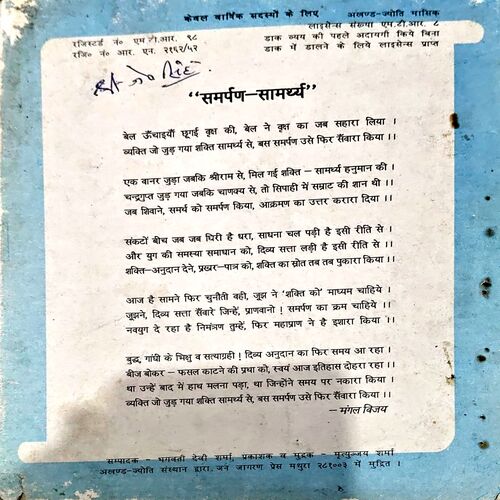 केवल वार्षिक सदस्यों के लिए अखण्ड-ज्योति मासिक
लाइसेन्स संख्या एम.टी.आर. ८
रजिस्टर्ड नं० एम.टी.आर. ९८ डाक व्यय की पहले अदायगी किये बिना
रजि० नं० आर. एन. २१६२/५२ डाक में डालने के लिये लाइसेन्स प्राप्त
“समर्पण-सामर्थ्य”
बेल ऊँचाइयाँ छूगई वृक्ष की, बेल ने वृक्ष का जब सहारा लिया ।
व्यक्ति जो जुड़ गया शक्ति सामर्थ्य से, बस समर्पण उसे फिर सँवारा किया ।।
एक वानर जुड़ा जबकि श्रीराम से, मिल गई शक्ति – सामर्थ्य हनुमान की ।
चन्द्रगुप्त जुड़ गया जबकि चाणक्य से, तो सिपाही में सम्राट की शान थी ।।
जब शिवाने, समर्थ को समर्पण किया, आक्रमण का उत्तर करारा दिया ।।
संकटों बीच जब जब घिरी है धरा, साधना चल पड़ी है इसी रीति से ।
और युग की समस्या समाधान को, दिव्य सत्ता लड़ी है इसी रीति से ।।
शक्ति-अनुदान देने, प्रखर-पात्र को, शक्ति का स्रोत तब तब पुकारा किया ।।
आज है सामने फिर चुनौती वही, जुझ ने ‘शक्ति को’ माध्यम चाहिये ।
जुझने, दिव्य सत्ता सँवारे जिन्हें, प्राणवानो ! समर्पण का क्रम चाहिये ।।
नवयुग दे रहा है निमंत्रण तुम्हें, फिर महाप्राण ने है इशारा किया ।।
बुद्ध, गांधी के भिक्षु व सत्याग्रही ! दिव्य अनुदान का फिर समय आ रहा ।
बीज बोकर – फसल काटने की प्रथा को, स्वयं आज इतिहास दोहरा रहा ।।
था उन्हें बाद में हाथ मलना पड़ा, था जिन्होंने समय पर नकारा किया ।
व्यक्ति जो जुड़ गया शक्ति सामर्थ्य से, बस समर्पण उसे फिर सँवारा किया ।।
– मंगल विजय
सम्पादक - भगवती देवी शर्मा, प्रकाशक व मुद्रक - मृत्युञ्जय शर्मा
अखण्ड-ज्योति संस्थान द्वारा, जन जागरण प्रेस मथुरा २८१००३ में मुद्रित ।